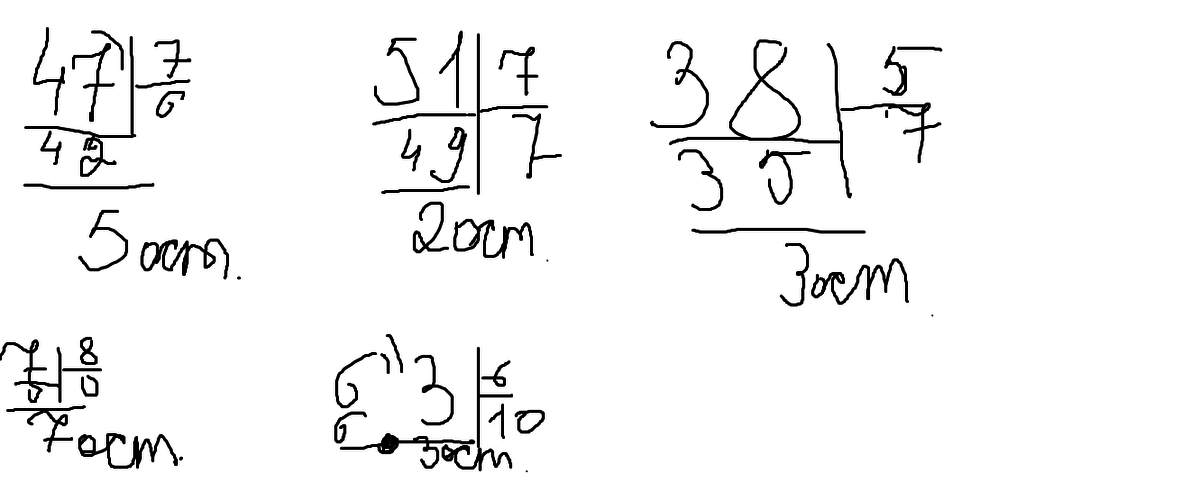 47 7
6
42
5 ост.
51 7
49 7
2 ост.
38 5
7
35
3 ост.
7 8
0 0
7 ост.
63 6
6 10
3 ост.